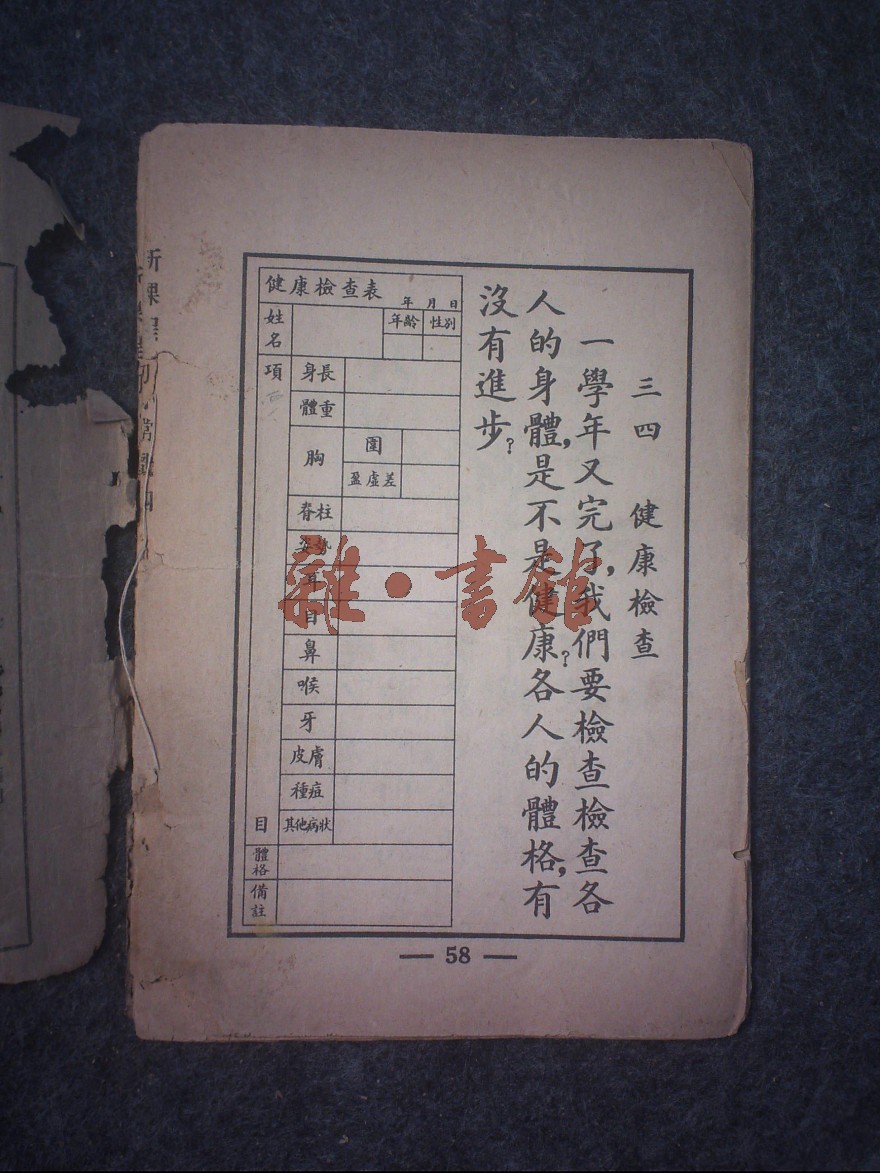 三四　健康檢查
一學年又完了,我們要檢查檢查各
人的身體,是不是健康?各人的體格,有
沒有進步?
健康檢查表
年 月 日
姓名
年齡 性別
項目
身長
體重
胸
圍
盈虛差
脊柱
姿勢
耳
目
鼻
喉
牙
皮膚
種痘
其他病狀
體格
備註
— 58 —
雜·書館